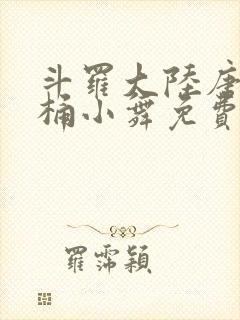 斗羅大陸唐
桶小舞免費
羅霈穎